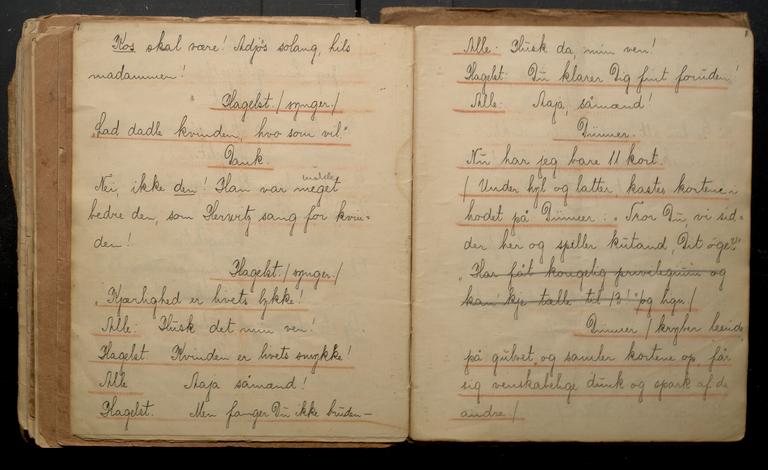 Kos skal være! Adjøs solang, hils
madammen!
Hagelst. / synger. /
"Lad dadle kvinden, hvo som vil"
Dank.
Nei, ikke den! Han var meget
bedre den, som Herwitz sang for kvin=
den!
Hagelst. / synger. /
"Kjærlighed er livets lykke!
Alle: Husk det min ven!
Hagelst. Kvinden er livets smykke!
Alle Aaja såmænd!
Hagelst. Men fanger Du ikke bruden—
Alle: Husk da, min ven!
Hagelst: Du klarer Dig fint foruden!
Alle: Aaja, såmænd!
Dünner.
Nu har jeg bare 11 kort.
/ Under hyl og latter, kastes kortene i
hodet på Dünner: "Tror Du, vi sid=
der her og spiller kutand, Dit øg
"Har fåt kongelig privilegium og
kan' kje tælle til 13!" og lign /
Dünner / kryber leende
på gulvet og samler kortene op, får
sig venskabelige dunk og spark af de
andre /